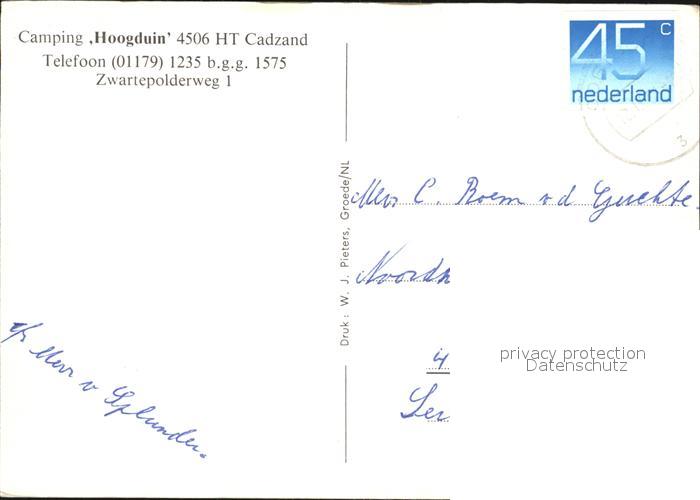 Camping ‚Hoogduin' 4506 HT Cadzand
Telefoon (01179) 1235 b.g.g. 1575
Zwartepolderweg 1
45 c
nederland
3
Druk: W. J. Pieters, Groede/NL
Mevr C. Boem v d
Noordh
4
privacy protection
Datenschutz
Mevr v Splunder.